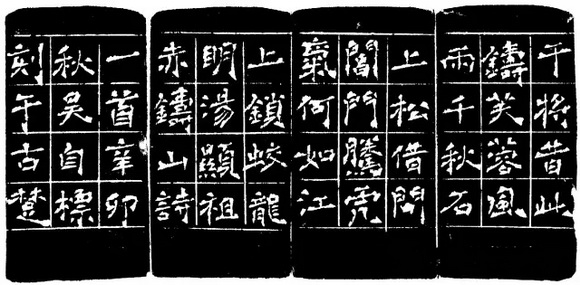 干將昔此
鑄芙蓉風
雨千秋石
上松借問
閶門騰虎
氣何如江
上鎖蛟龍
明湯顯祖
赤鑄山詩
一首辛卯
秋吳自標
刻于古楚